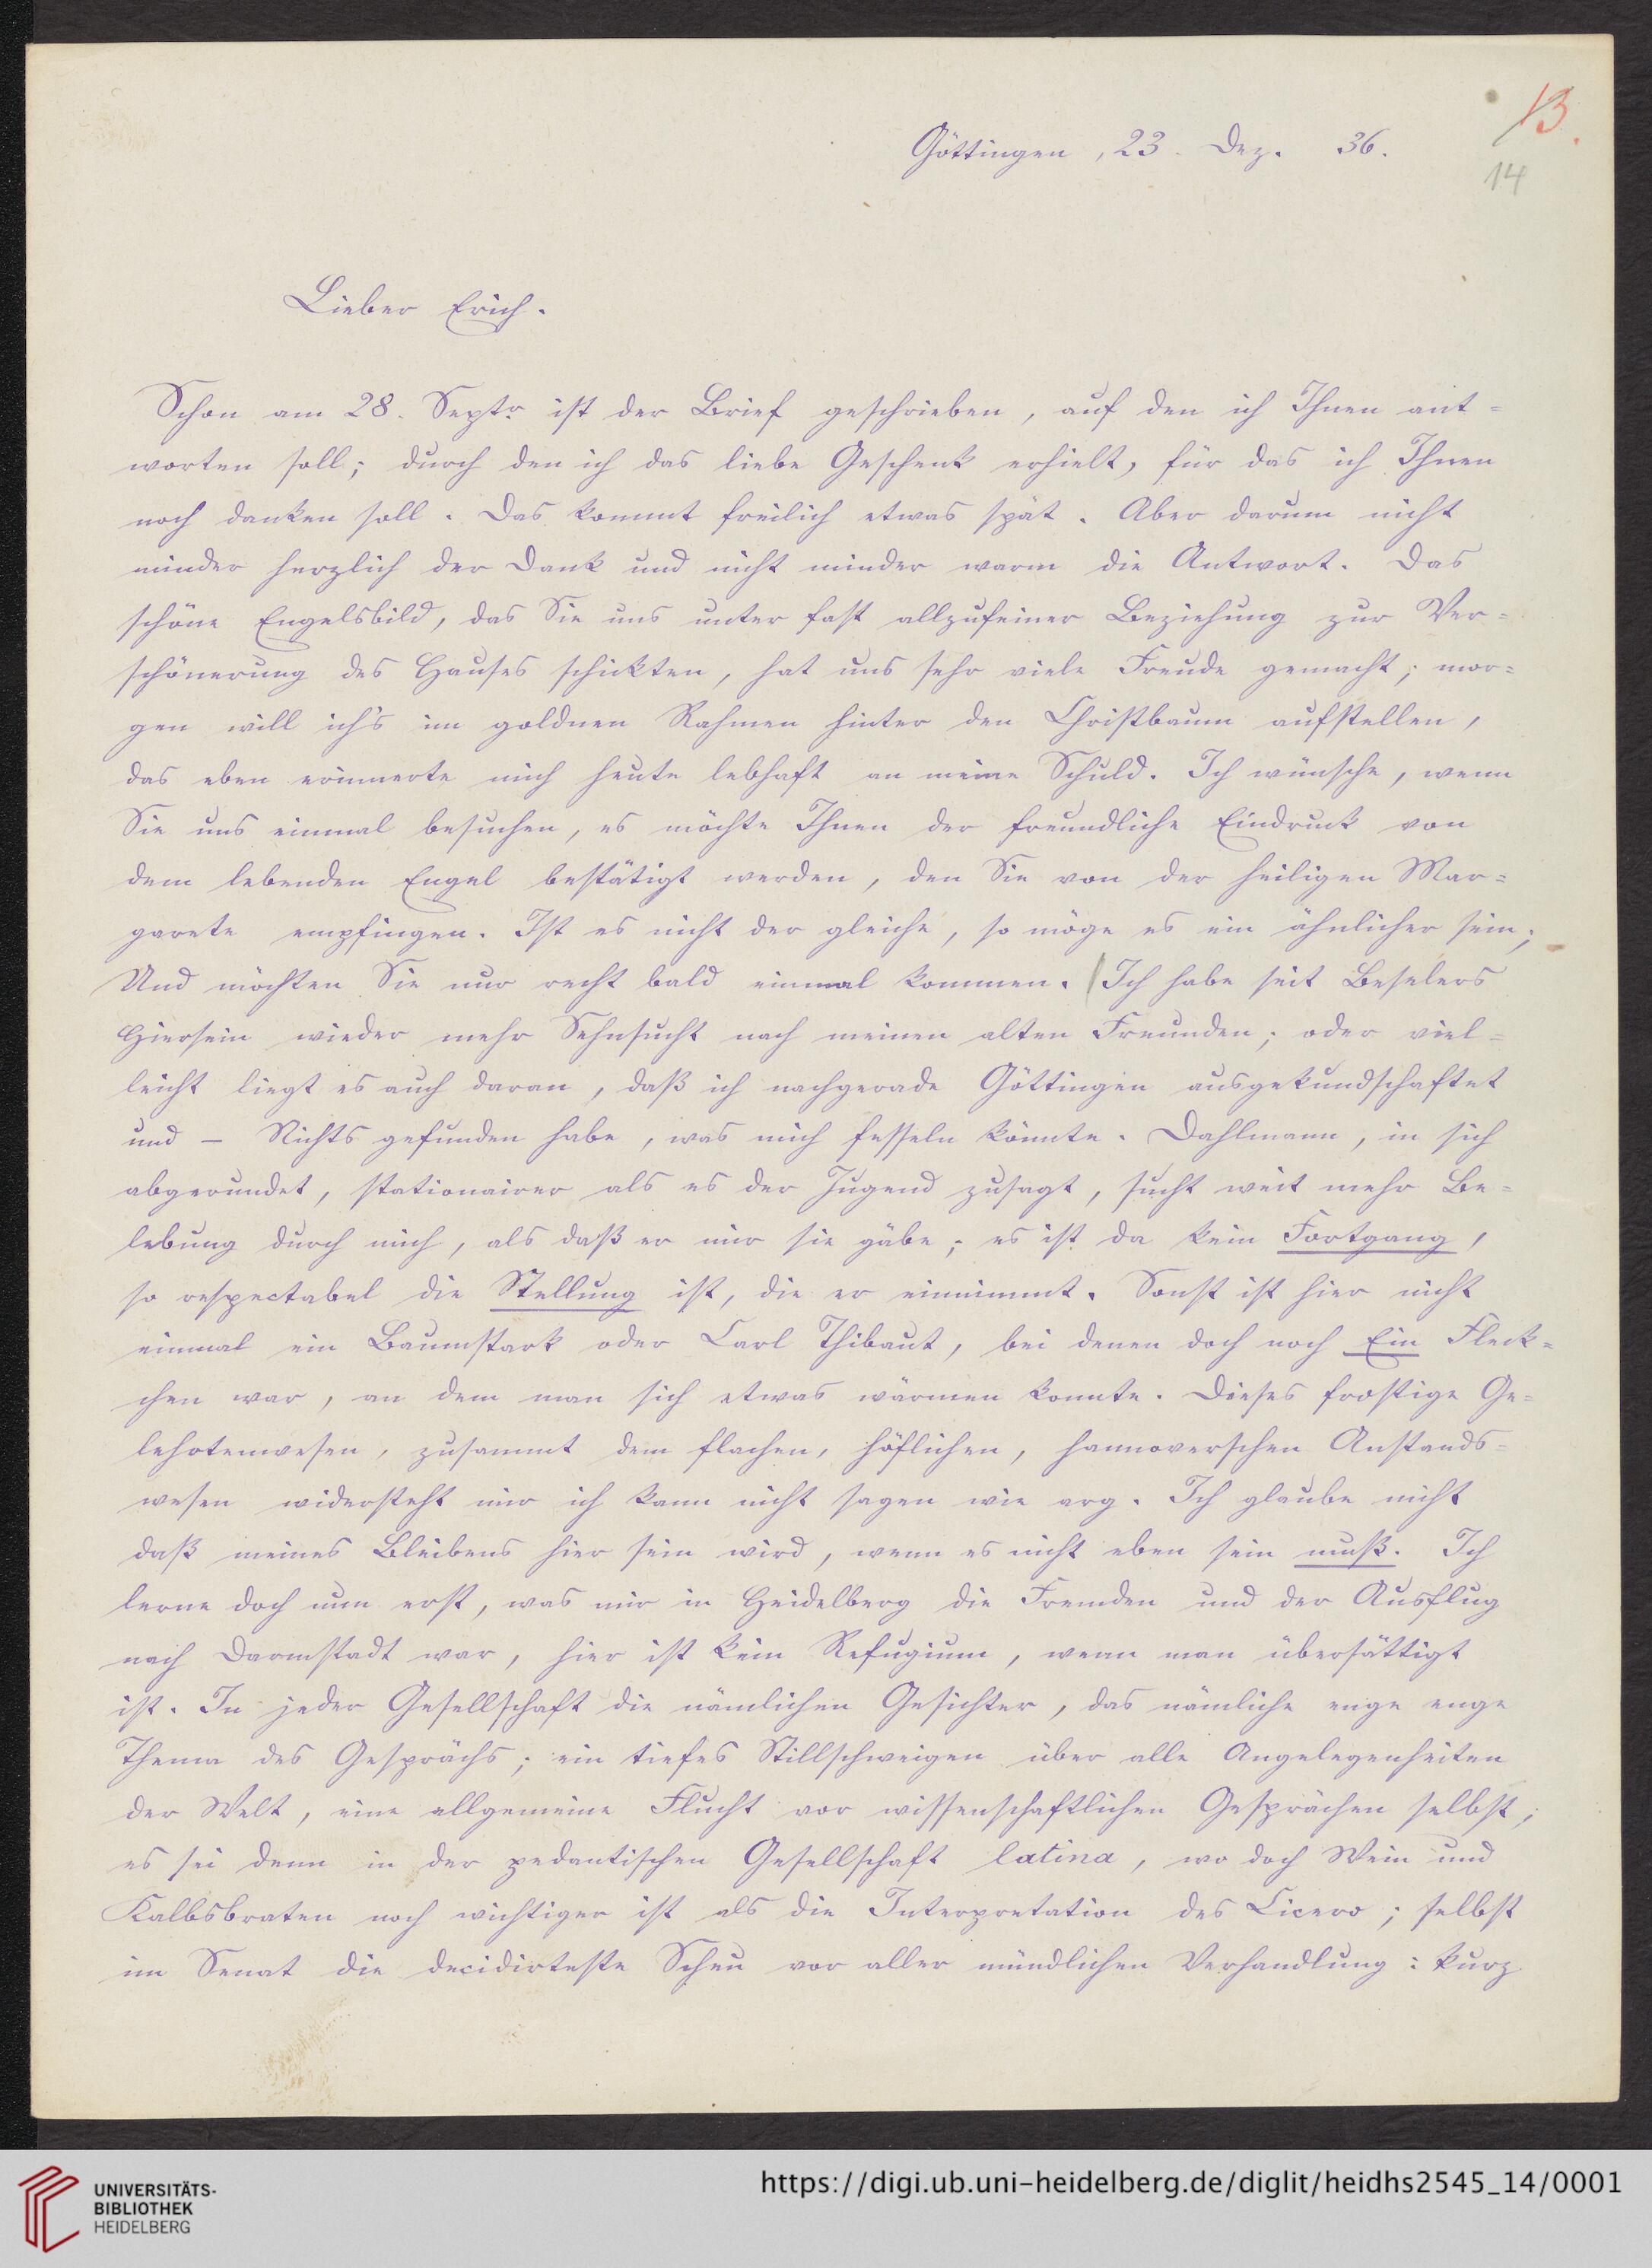 13.
Göttingen, 23. Dez. 36.
14
Lieber Erich.
Schon am 28. Septr ist der Brief geschrieben, auf den ich Ihnen ant=
worten soll; durch den ich das liebe Geschenk erhielt, für das ich Ihnen
noch danken soll. Das kommt freilich etwas spät. Aber darum nicht
minder herzlich der Dank und nicht minder warm die Antwort. Das
schöne Engelsbild, das Sie uns unter fast allzufeiner Beziehung zur Ver=
schönerung des Hauses schickten, hat uns sehr viele Freude gemacht; mor=
gen will ich's im goldnen Rahmen hinter den Christbaum aufstellen,
das eben erinnerte mich heute lebhaft an meine Schuld. Ich wünsche, wenn
Sie uns einmal besuchen, es möchte Ihnen der freundliche Eindruck von
dem lebenden Engel bestätigt werden, den Sie von der heiligen Mar=
garete empfingen. Ist es nicht der gleiche, so möge es ein ähnlicher sein;
Und möchten Sie nur recht bald einmal kommen. Ich habe seit Beselers
Hiersein wieder mehr Sehnsucht nach meinen alten Freunden; oder viel=
leicht liegt es auch daran, daß ich nachgerade Göttingen ausgekundschaftet
und – Nichts gefunden habe, was mich fesseln könnte. Dahlmann, in sich
abgerundet, stationairer als es der Jugend zusagt, sucht weit mehr Be=
lebung durch mich, als daß er mir sie gäbe; es ist da kein Fortgang,
so respectabel die Stellung ist, die er einnimmt. Sonst ist hier nicht
einmal ein Baumstark oder Carl Thibaut, bei denen doch noch Ein Fleck=
chen war, an dem man sich etwas wärmen konnte. Dieses frostige Ge=
lehrtenwesen, zusammt dem flachen, höflichen, hannoverschen Anstands=
wesen widersteht mir ich kann nicht sagen wie arg. Ich glaube nicht
daß meines Bleibens hier sein wird, wenn es nicht eben sein muß. Ich
lerne doch nun erst, was mir in Heidelberg die Fremden und der Ausflug
nach Darmstadt war, hier ist kein Refugium, wenn man übersättigt
ist. In jeder Gesellschaft die nämlichen Gesichter, das nämliche enge enge
Thema des Gesprächs; ein tiefes Stillschweigen über alle Angelegenheiten
der Welt, eine allgemeine Flucht vor wissenschaftlichen Gesprächen selbst,
es sei denn in der pedantischen Gesellschaft latina, wo doch Wein und
Kalbsbraten noch wichtiger ist als die Interpretation des Cicero; selbst
im Senat die decidirteste Scheu vor aller mündlichen Verhandlung: kurz
UNIVERSITÄTS-
BIBLIOTHEK
HEIDELBERG
https://digi.ub.uni-heidelberg.de/diglit/heidhs2545_14/0001